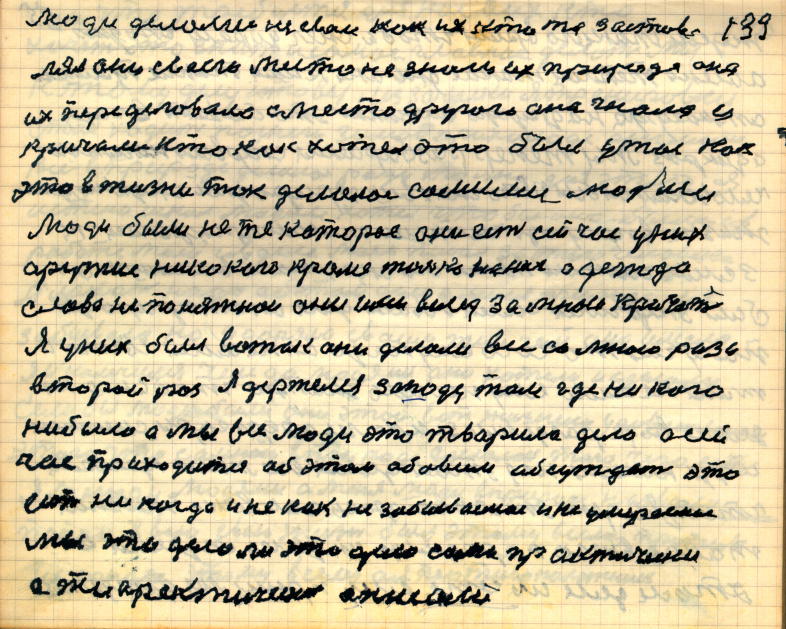 люди делали не свое как их кто то застав 133
лял они своего место не знали их природа она
их переделовала а место другого она гнала и
кричали кто как хотел это был ужас как
это в жизни так делалос самими людми
люди были не те каторые они ест сейчас у них
аружие никокого кроме толко на них одежда
слова не понятной они шли вслед за мною кричат
Я у них был вот так они делали все со мною раза
второй раз Я держелся западу там где никого
нибыло а мы все люди это тварила дело а сей
час приходится аб этом обовсем абсуждат это
ест никогда и не как не забываемое и не умираемое
мы это делали это дело сами практически
а тиаректически